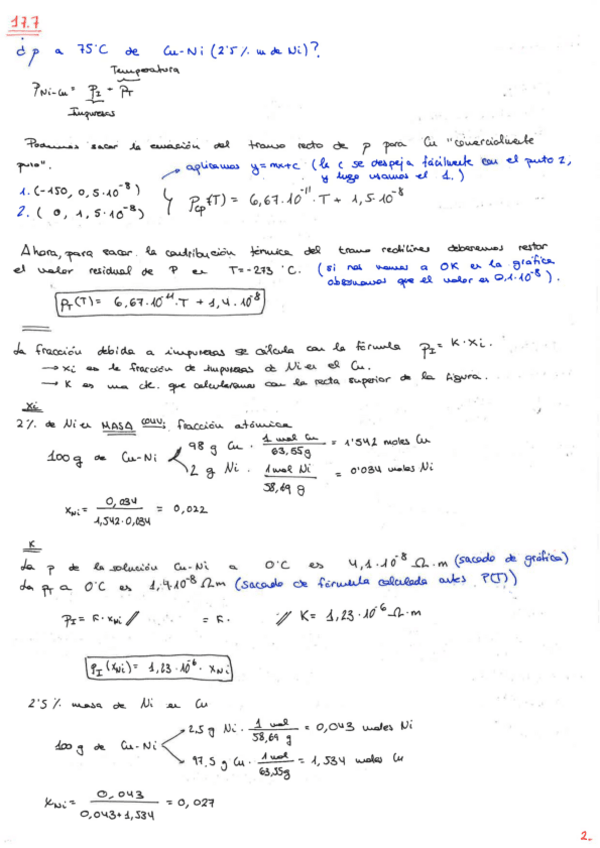 17.7
¿ρ a 75°C de Cu-Ni (2'5% m de Ni)?
Temperatura
ρNi-Cu = ρI + ρT
Impurezas
Podemos sacar la ecuación del tramo recto de ρ para Cu "comercialmente
puro".
aplicamos y=mx+c (la c se despeja fácilmente con el punto 2,
y luego usamos el 1.)
1. (-150, 0,5·10⁻⁸)
2. ( 0, 1,5·10⁻⁸)
ρcp(T) = 6,67·10⁻¹¹·T + 1,5·10⁻⁸
Ahora, para sacar la contribución térmica del tramo rectilíneo deberemos restar
el valor residual de ρ en T=-273 °C. (si nos vamos a 0K en la gráfica
observamos que el valor es 0,1·10⁻⁸).
ρT(T) = 6,67·10⁻¹¹·T + 1,4·10⁻⁸
La fracción debida a impurezas se calcula con la fórmula ρI = K·Xi.
→ Xi es la fracción de impurezas de Ni en el Cu.
→ K es una cte. que calcularemos con la recta superior de la figura.
Xi
2% de Ni en MASA conv. fracción atómica
100g de Cu-Ni
98 g Cu · 1 mol Cu / 63,55g = 1'542 moles Cu
2 g Ni · 1 mol Ni / 58,69 g = 0'034 moles Ni
XNi = 0,034 / 1,542·0,034 = 0,022
K
La ρ de la solución Cu-Ni a 0°C es 4,1·10⁻⁸ Ω·m (sacado de gráfica)
La ρT a 0°C es 1,4·10⁻⁸ Ωm (sacado de fórmula calculada antes P(T))
ρI = K·XNi // = K· // K = 1,23·10⁻⁶ Ω·m
ρI (XNi) = 1,23·10⁻⁶· XNi
2'5% masa de Ni en Cu
100g de Cu-Ni
2,5 g Ni · 1 mol / 58,69 g = 0,043 moles Ni
97,5 g Cu · 1 mol / 63,55g = 1,534 moles Cu
XNi = 0,043 / 0,043+1,534 = 0,027
2.